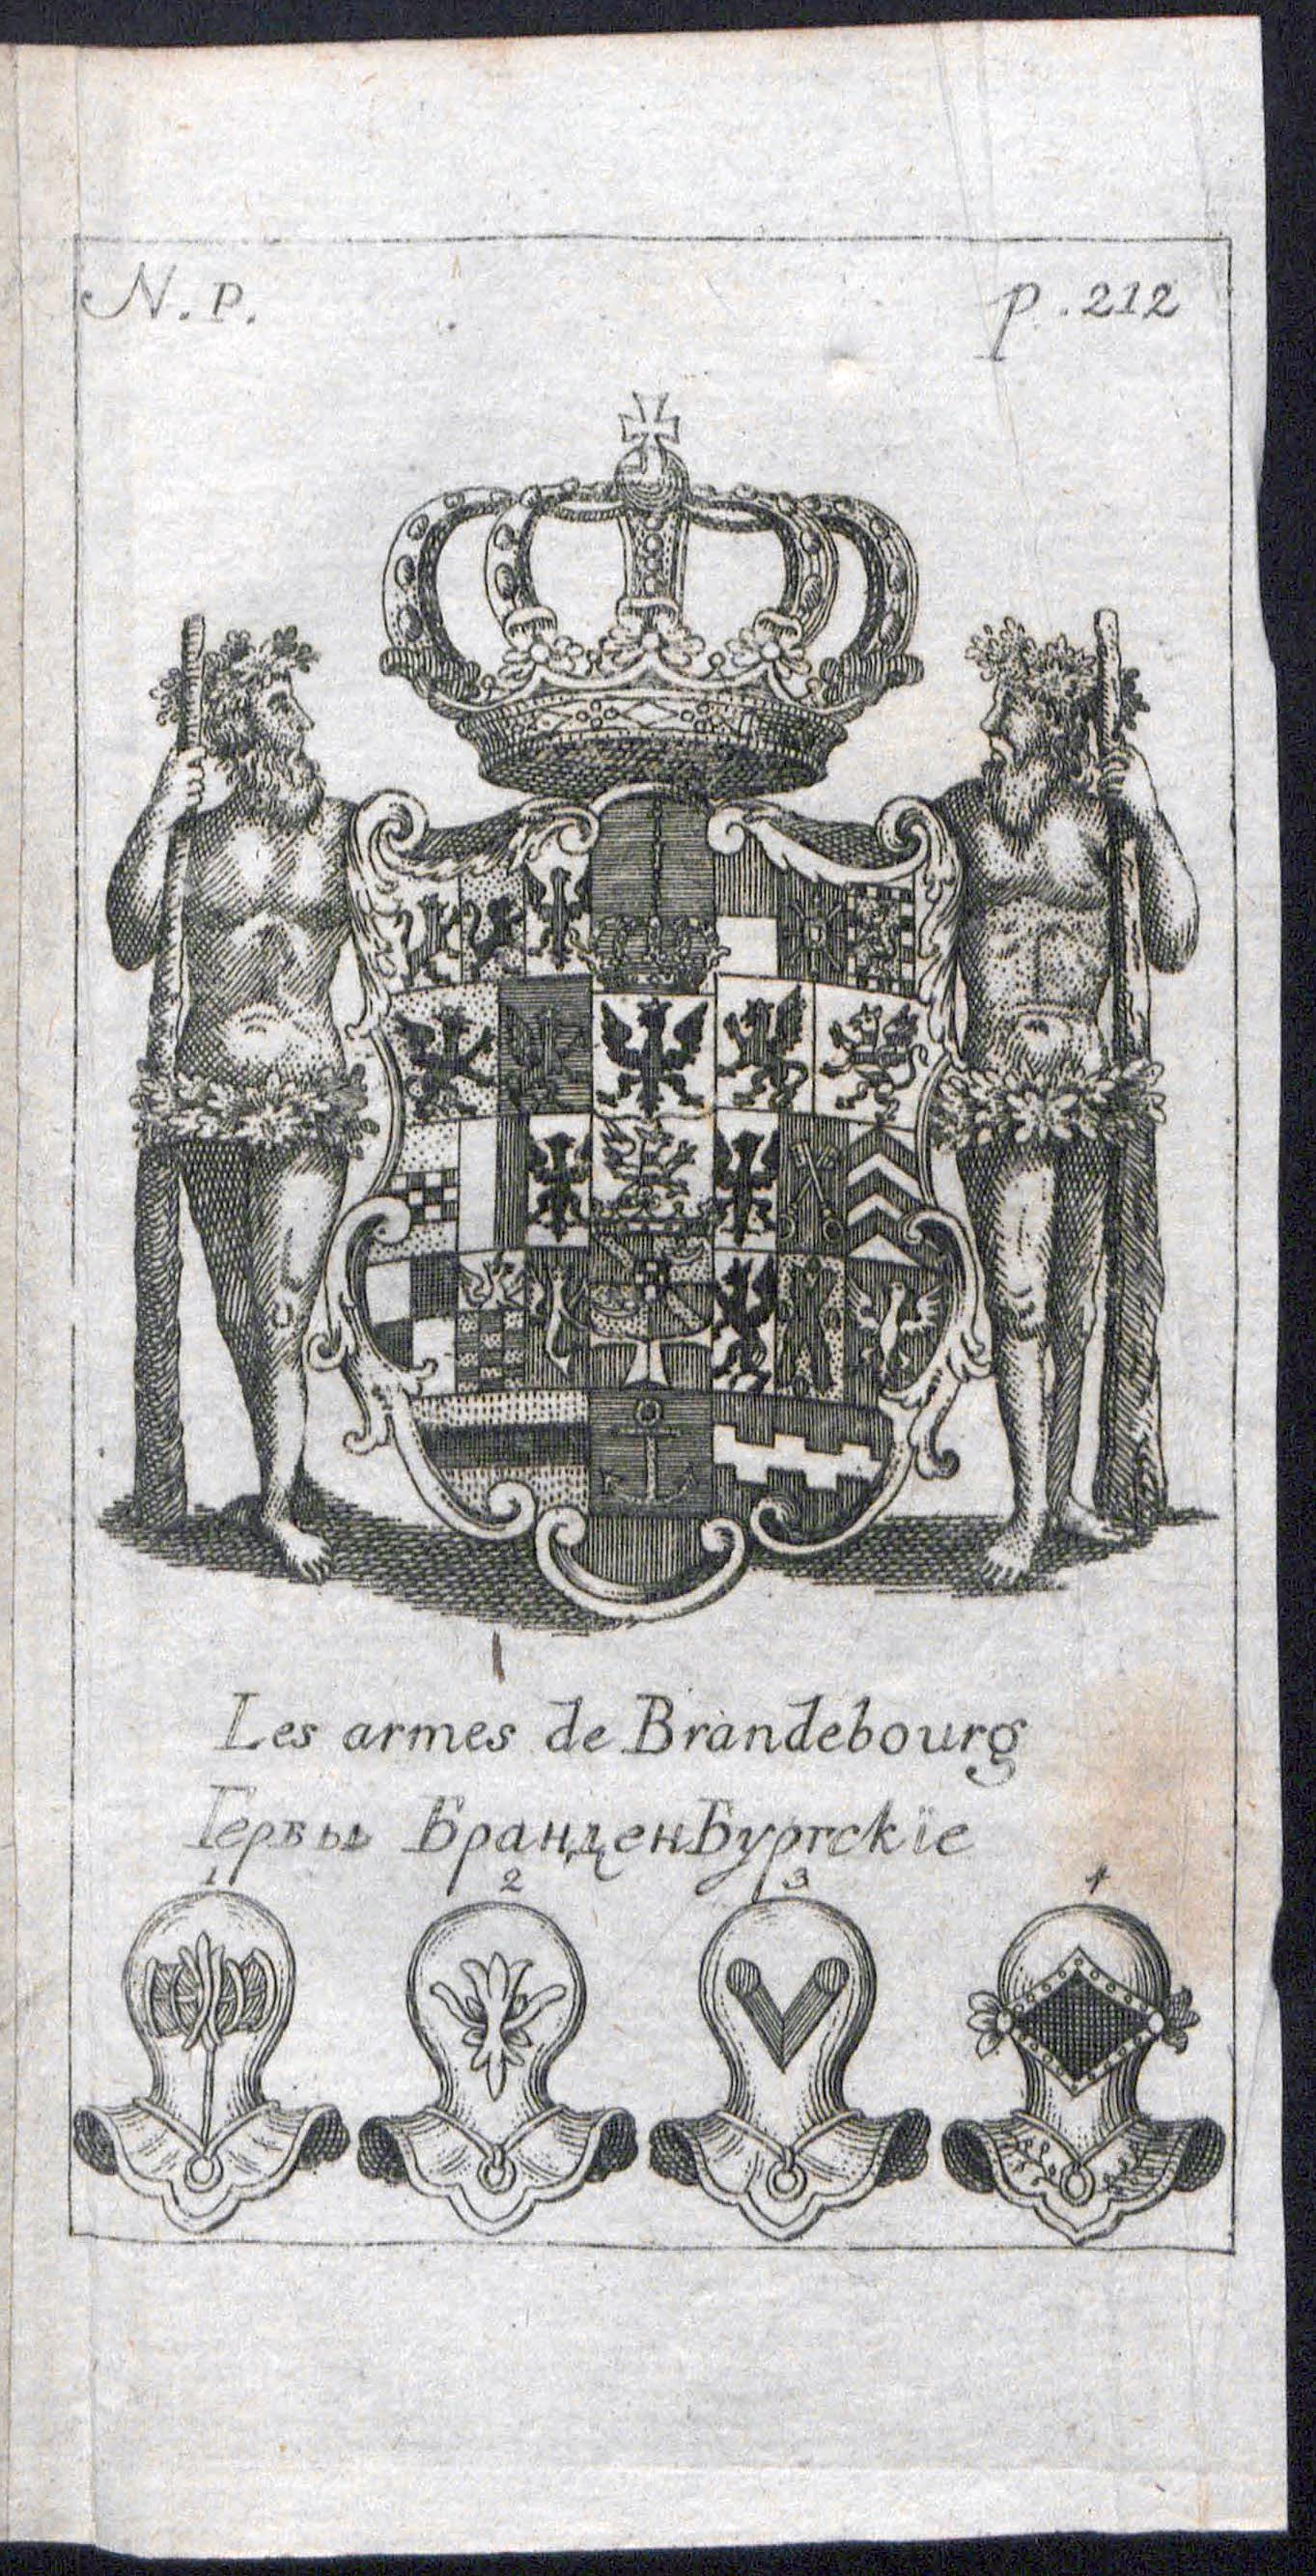 N. P. p. 212
Les armes de Brandebourg
Гервы БранденБургскїе
1 2 3 4